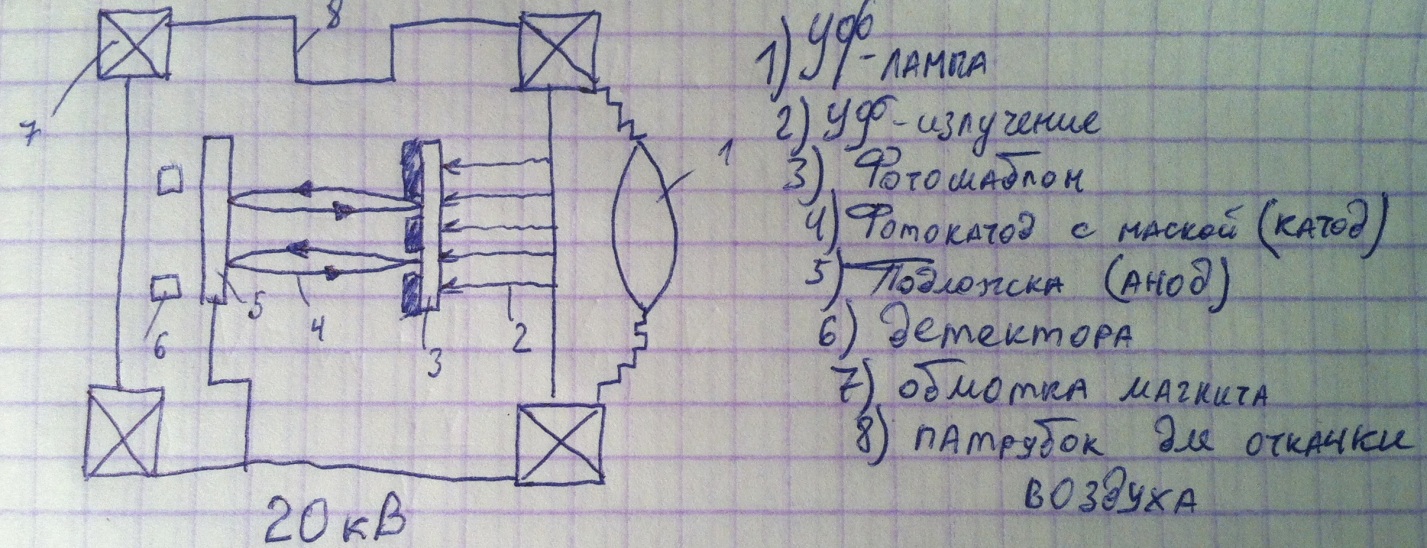 8
7
1
6
5
4
3
2
20 кВ
1) Уф-лампа
2) Уф-излучение
3) Фотошаблон
4) Фотокатод с маской (катод)
5) Подложка (анод)
6) детектора
7) обмотка магнита
8) патрубок для откачки
воздуха